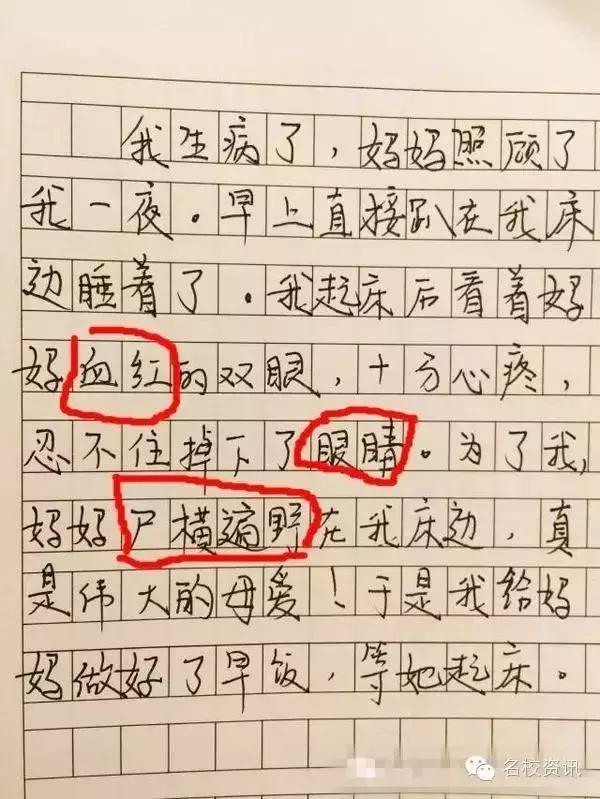 我生病了，妈妈照顾了
我一夜。早上直接趴在我床
边睡着了。我起床后看着好
好血红的双眼，十分心疼，
忍不住掉下了眼睛。为了我，
妈好尸横遍野在我床边，真
是伟大的母爱！于是我给妈
妈做好了早饭，等她起床。
名校资讯